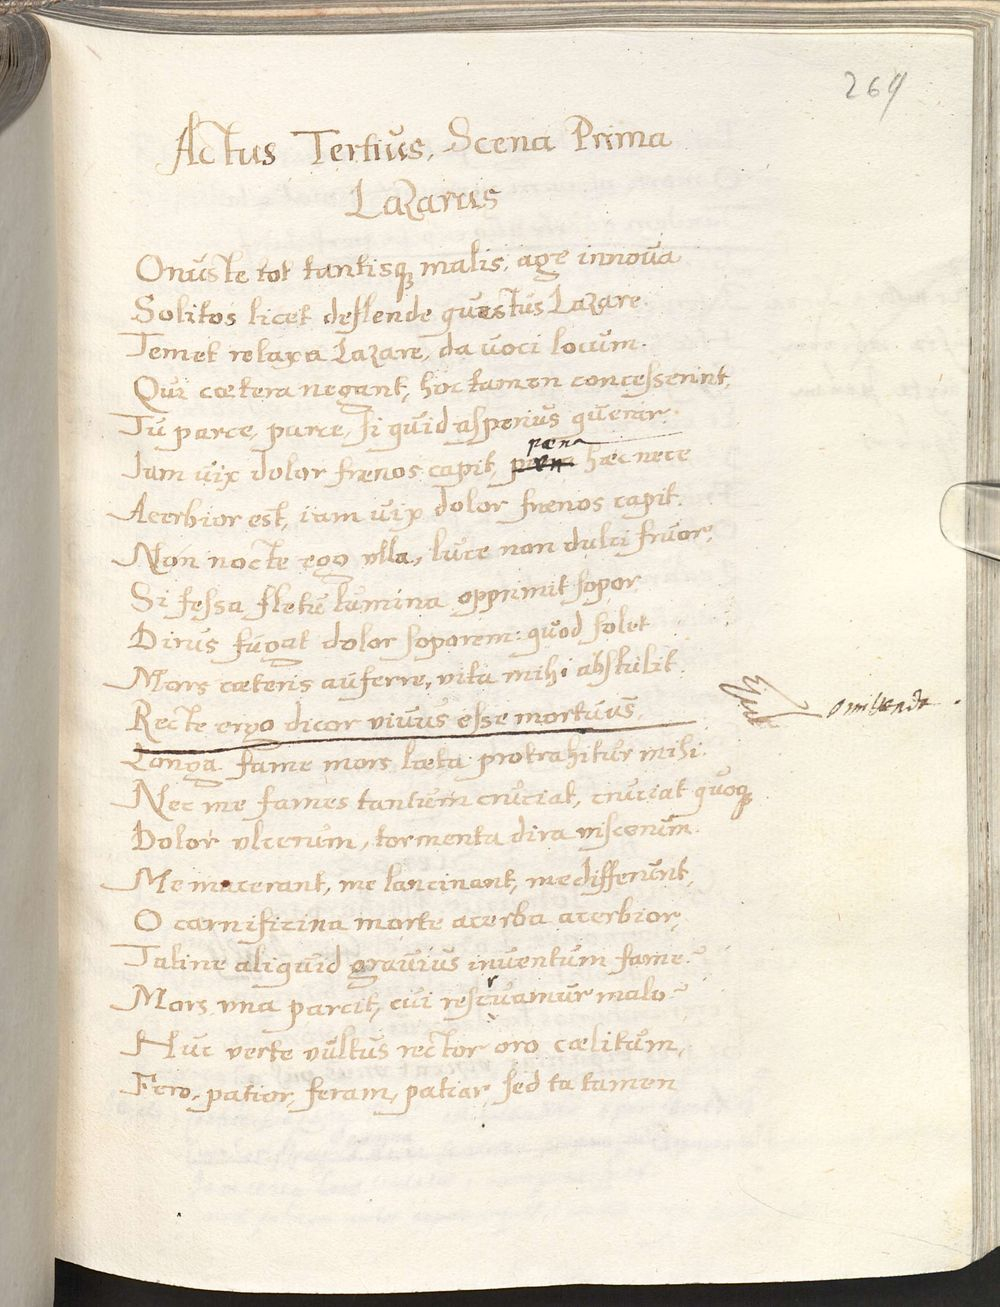 269
Actus Tertius, Scena Prima
Lazarus
Onuste tot tantisq malis, age innoua
Solitos licet deflende quæstus Lazare
Temet relaxa Lazare, da uoci locum.
Qui cætera negant, hoc tamen concesserint,
Tu parce, parce, si quid asperius querar.
pæna
Iam uix dolor frænos capit, hæc nece
Acerbior est, iam uix dolor frænos capit.
Non nocte ego ulla, luce non dulci fruor,
Si fessa fletu lumina opprimit sopor
Dirus fugat dolor soporem: quod solet
Mors cæteris auferre, vita mihi abstulit.
Recte ergo dicor viuus esse mortuus,
omittenda.
Longa fame mors læta protrahitur mihi.
Nec me fames tantum cruciat, cruciat quoq
Dolor vlcerum, tormenta dira viscerum.
Me macerant, me lancinant, me differunt,
O carnificina morte acerba acerbior,
Taline aliquid grauius inuentum fame?
Mors vna parcit, cui reseruamur malo?
Huc verte uultus rector oro cælitum,
Fero, patior, feram, patiar, sed tu tamen